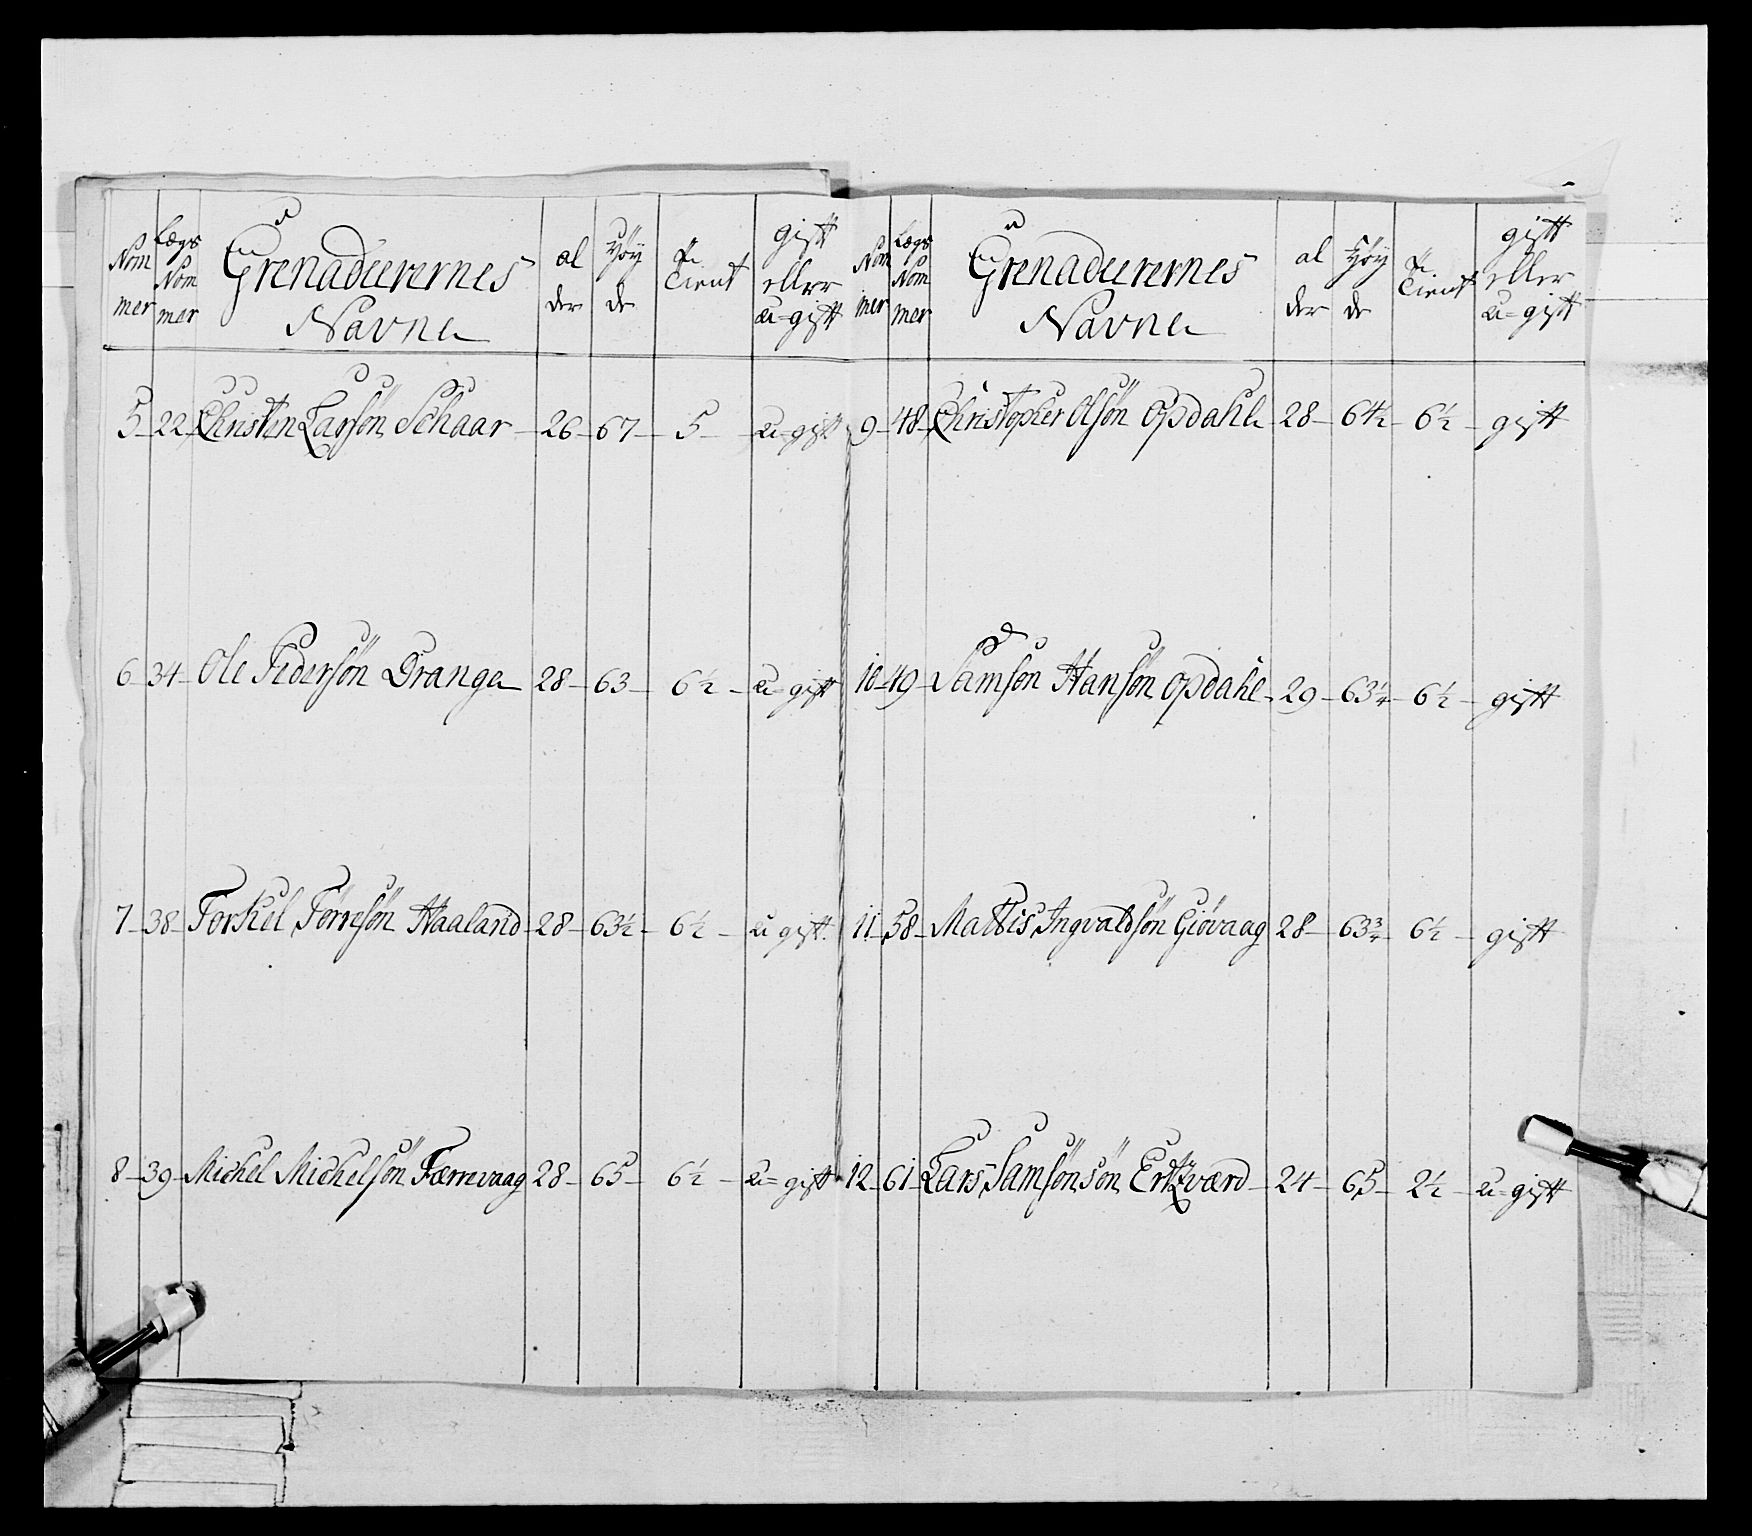 Nom
mer
Lægs
Nom
mer
Grenadurernes
Navne
al
der
Höy
de
Tient
gift
eller
u-gift
5 22 Christen Larsön Schaar 26 67 5 u-gift
6 34 Ole Pedersön Drange 28 63 6½ u-gift
7 38 Torkel Törresön Haaland 28 63½ 6½ u gift
8 39 Michel Michelsön Færrevaag 28 65 6½ u-gift
Nom
mer
Lægs
Nom
mer
Grenadurernes
Navne
al
der
Höy
de
Tient
gift
eller
u-gift
9 48 Christopher Olsön Opdahl 28 64½ 6½ gift
10 49 Samson Hansön Opdahl 29 63¼ 6½ gift
11 58 Mattis Ingvaldsön Giövaag 28 63¾ 6½ gift
12 61 Lars Samsönsön Ertzværd 24 65 2½ u-gift